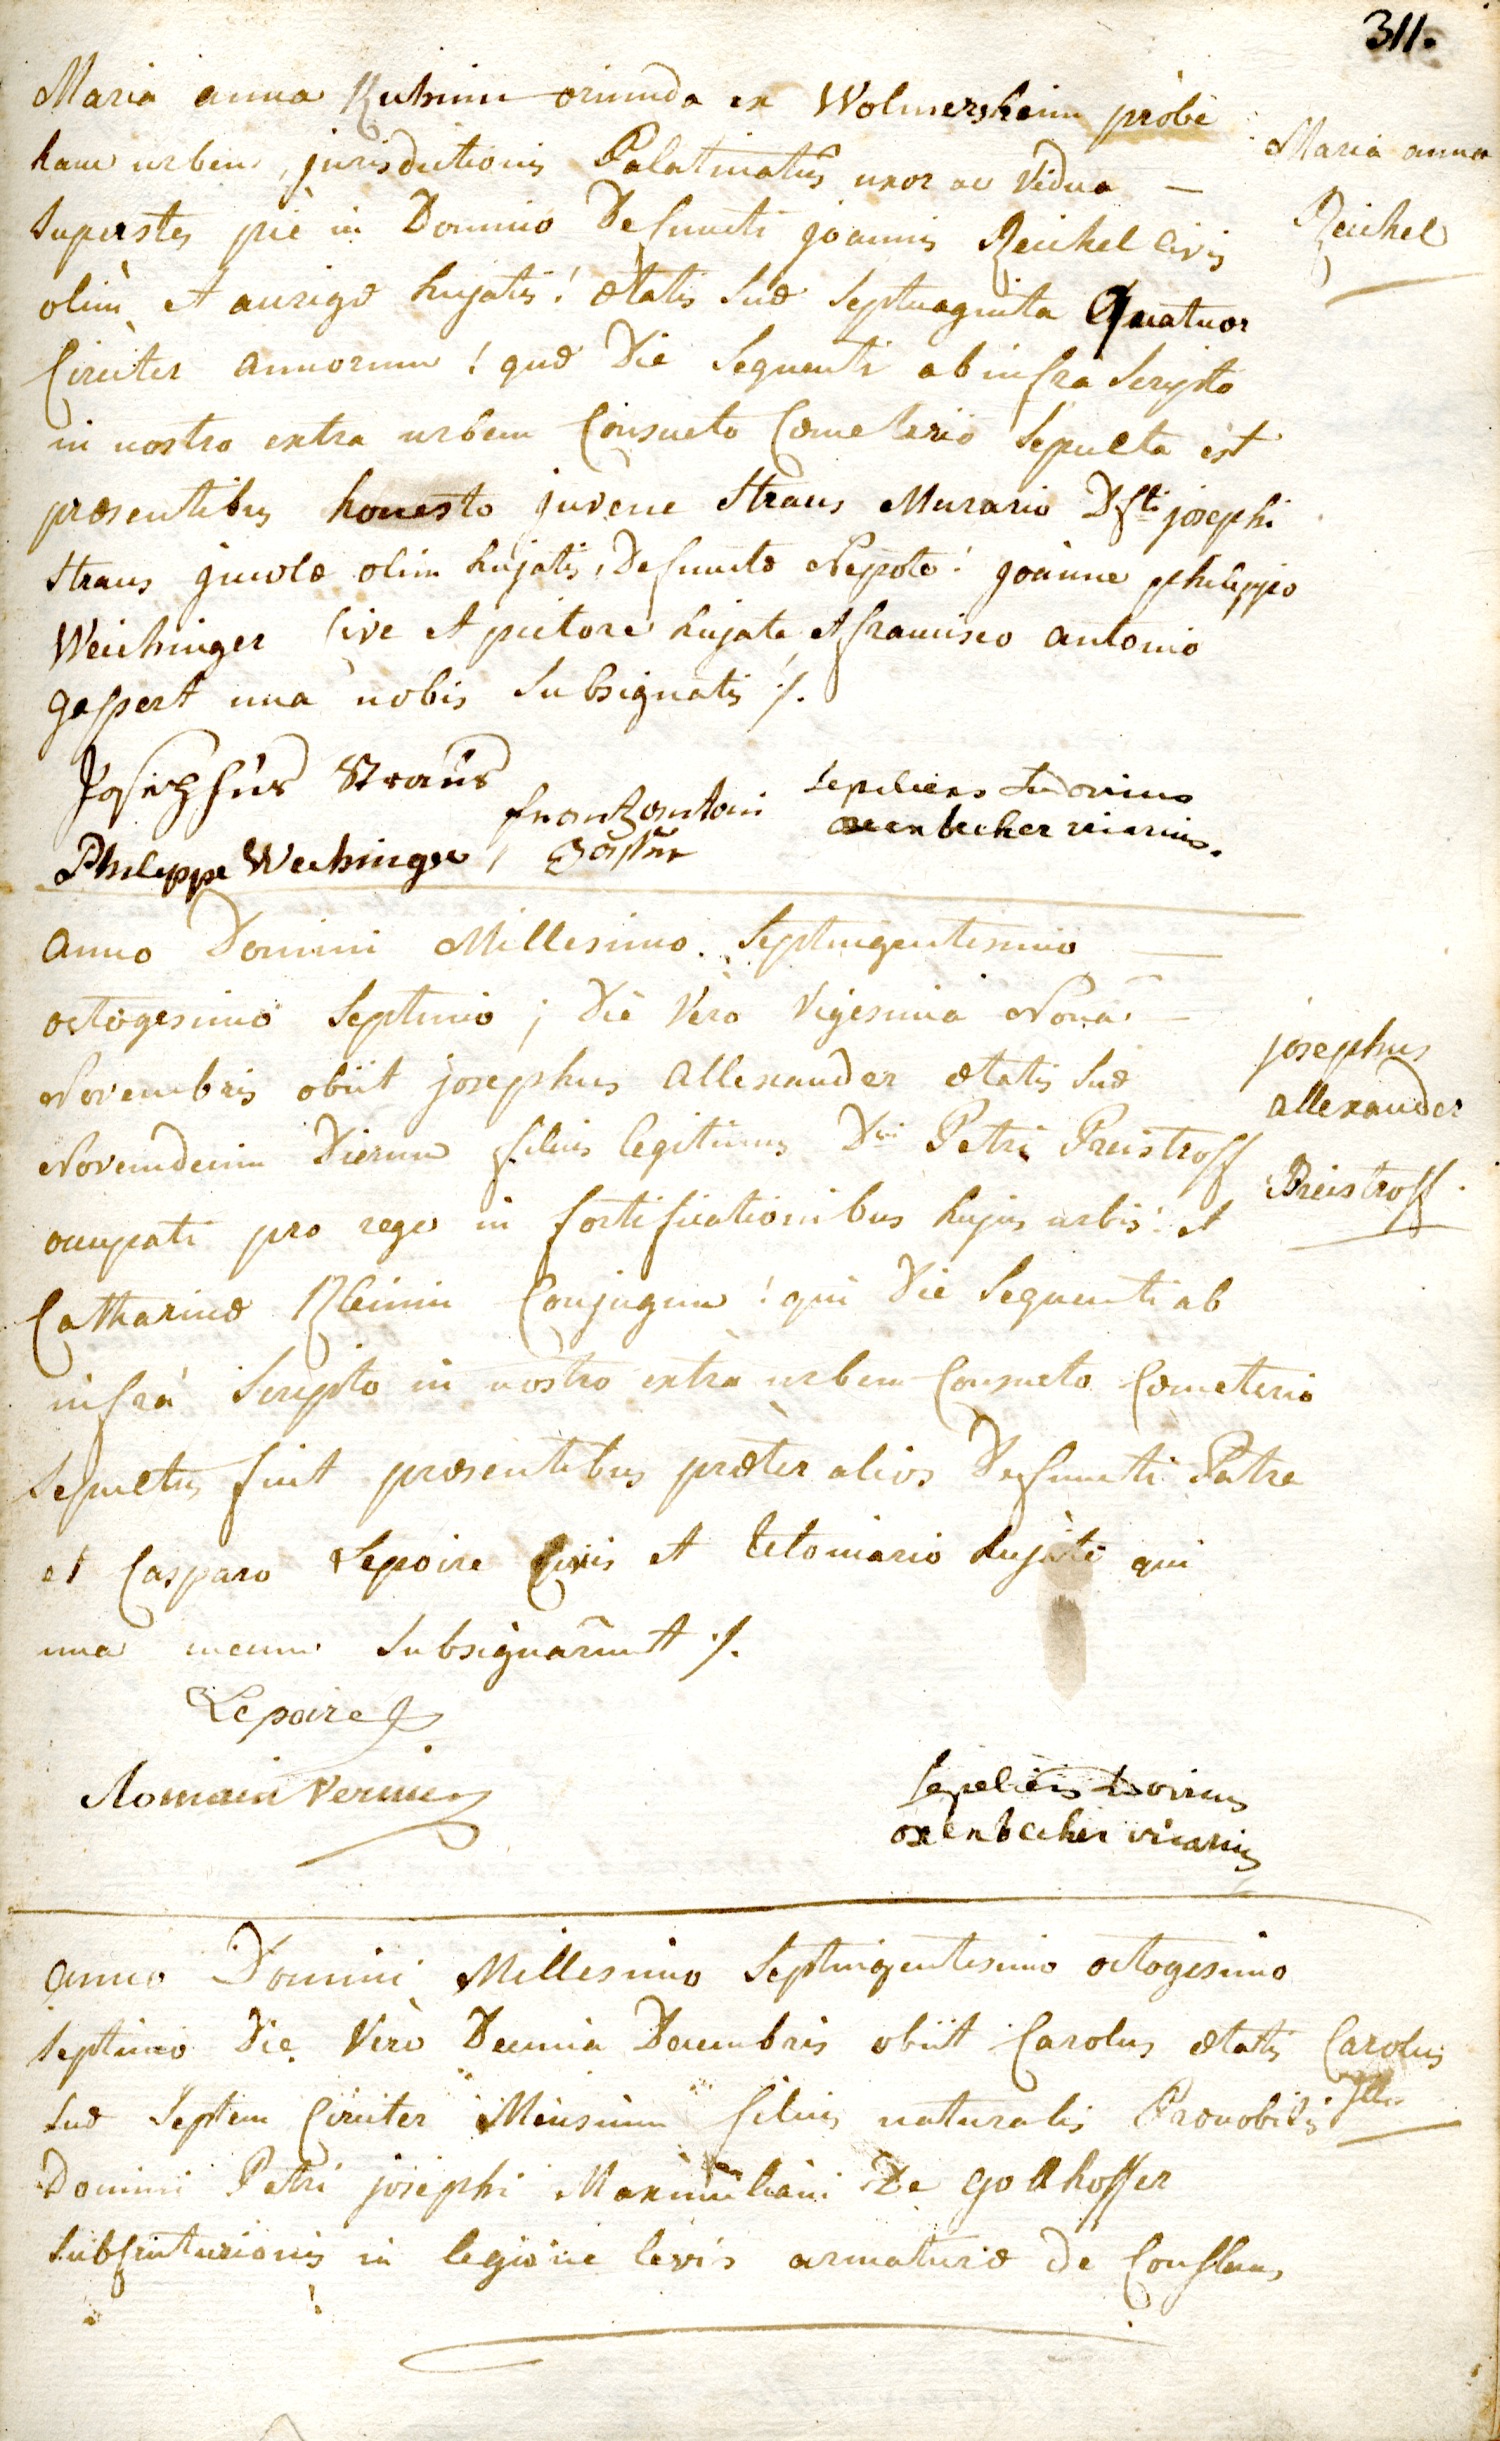 311.
Maria anna Kuhnin oriunda ex Wolmersheim probè
hanc urbem, jurisdictionis Palatinatûs uxor ac vidua —
superstes piè in Domino Defuncti joannis Reichel Civis
olim et aurigæ hujatis! ætatis suæ septuaginta quatuor
Circiter annorum! quæ Die sequenti ab infra scripto
in nostro extra urbem Consueto Cœmeterio sepulta est
præsentibus honesto juvene Straus Murario Dfti josephi
Straus incolæ olim hujatis, Defunctæ Nepote! joanne philippo
Weichinger Cive et pictore hujate, et francisco antonio
gassert una nobis subsignatis ./.
Maria anna
Reichel
Josephus Straus
frantz antoni
Philippe Wechinger
sepeliens Ludovicus
oxenbecher vicarius.
anno Domini Millesimo septingentesimo —
octogesimo septimo; Die Vero Vigesima Nona —
Novembris obiit josephus allexander ætatis suæ
Novemdecim Dierum filius legitimus Dni Petri Preistroff
occupati pro rege in fortificationibus hujus urbis! et
Catharinæ Kleinin Conjugum! qui Die sequenti ab
infrà scripto in nostro extra urbem Consueto Cœmeterio
sepultus fuit præsentibus præter alios Defuncti Patre
et Casparo Lepoire Civis et telomario hujate qui
una mecum subsignârunt ./.
josephus
allexander
Preistroff.
Lepoire
Romain Vernier
sepeliens Ludovicus
oxenbecher vicarius
anno Domini Millesimo septingentesimo octogesimo
septimo Die Verò Decima Decembris obiit Carolus ætatis
suæ septem Circiter Mensium filius naturalis Prænobilis
Domini Petri josephi Maximiliani De gollhoffer
subcenturionis in legione levis armaturæ de Conflans
Carolus
ill.